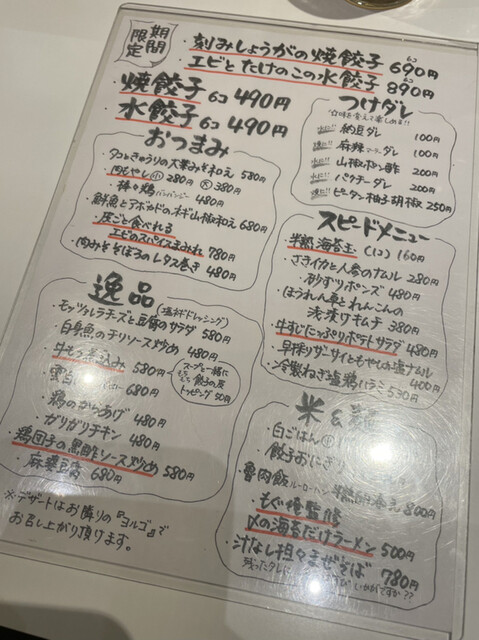 期間限定
・刻みしょうがの焼餃子 6コ 690円
・エビとたけのこの水餃子 6コ 890円
焼餃子 6コ 490円
水餃子 6コ 490円
つけダレ
納豆ダレ 100円
麻辣マーラーダレ 100円
山椒ポン酢 200円
パクチーダレ 200円
ピータン柚子胡椒 250円
おつまみ
・タコときゅうりの大葉みそ和え 580円
・肉もやし 小 280円 大 380円
・棒々鶏 バンバンジー 480円
・鮮魚とアボカドのネギ山椒和え 680円
・皮ごと食べれる
エビのスパイスまみれ 780円
・肉みそそぼろのレタス巻き 480円
スピードメニュー
・半熟海苔玉 (1コ) 160円
・さきイカと人参のナムル 280円
・砂ずりポンズ 480円
・ほうれん草とれんこんの
浅漬けキムチ 380円
・牛すじたっぷりポテトサラダ 480円
・早採りザーサイともやしの塩ナムル
400円
・冷製ねぎ塩鶏ハラミ 530円
逸品
(塩糀ドレッシング)
・モッツァレラチーズと豆腐のサラダ 580円
・白身魚のチリソース炒め 480円
・牛もつ煮込み 580円
スープと一緒に
餃子の皮
トッピング 50円
680円
・鶏のからあげ 480円
・ガリガリチキン 480円
・鶏団子の黒酢ソース炒め 580円
・麻婆豆腐 680円
米 &
・白ごはん 小
・餃子おにぎり
・魯肉飯 ルーローハン 添え 800円
・もぐ俺監修
〆の海苔だけラーメン 500円
・汁なし担々まぜそば 780円
残ったタレに いかがですか??
※デザートはお隣りの『ヨルゴ』で
お召し上がり頂けます。